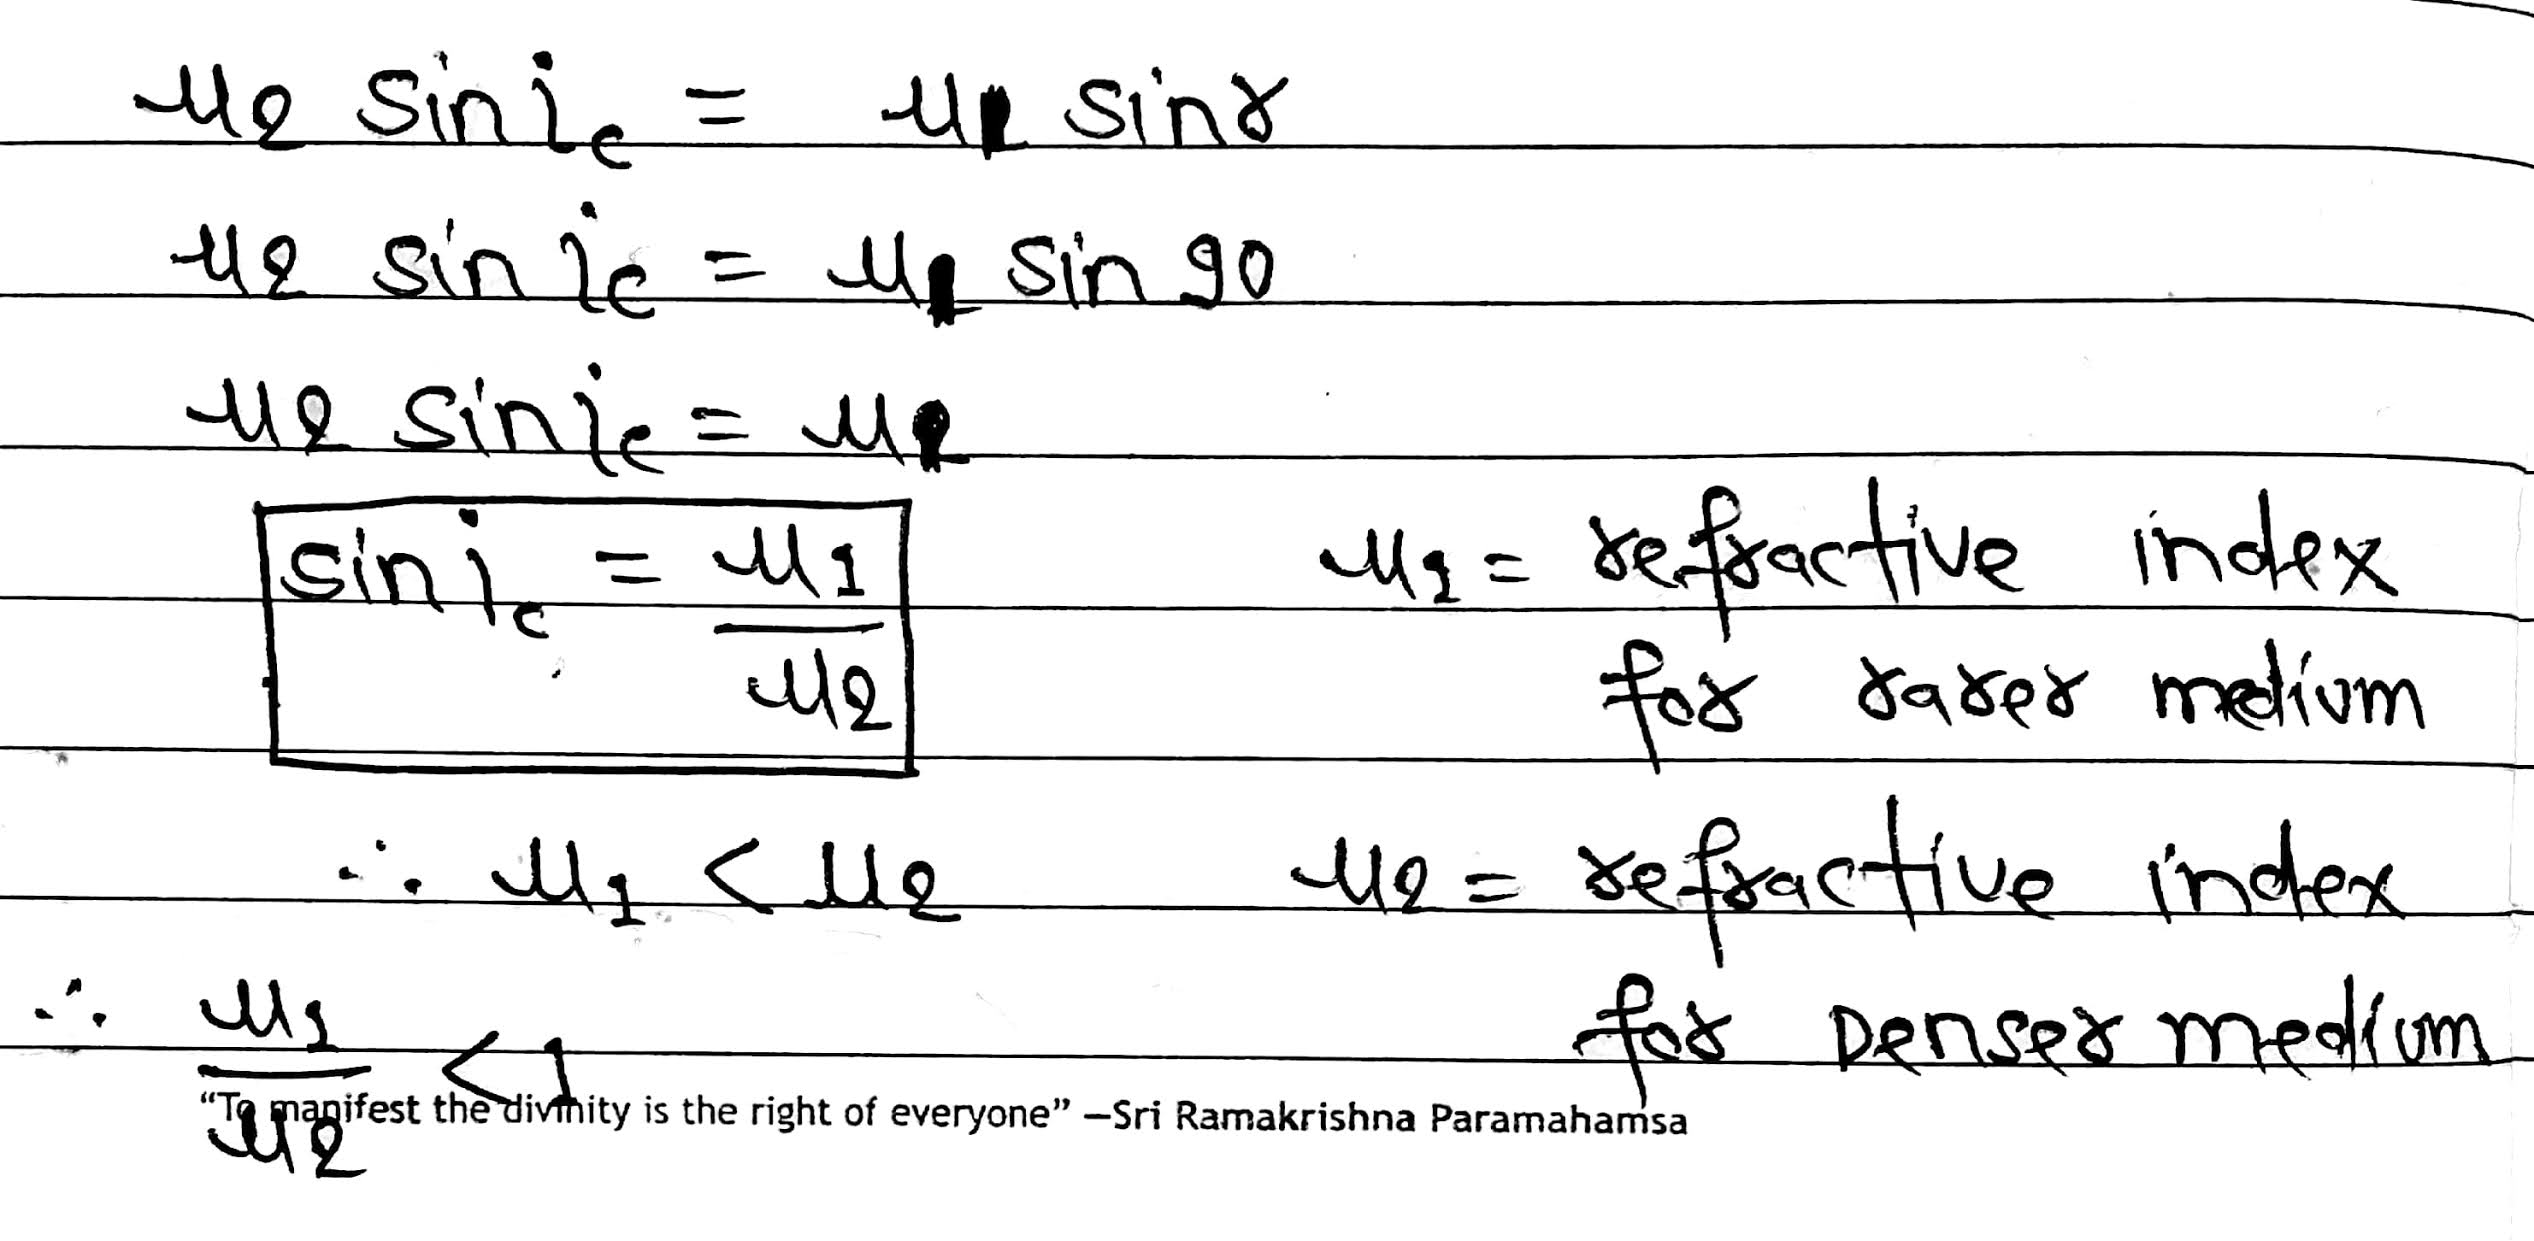 μ2 sin ic = μ1 sin r
μ2 sin ic = μ1 sin 90
μ2 sin ic = μ1
sin ic = μ1/μ2
μ1 = refractive index
for rarer medium
∴ μ1 < μ2
μ2 = refractive index
for Denser medium
∴ μ1/μ2 < 1
“To manifest the divinity is the right of everyone” —Sri Ramakrishna Paramahamsa